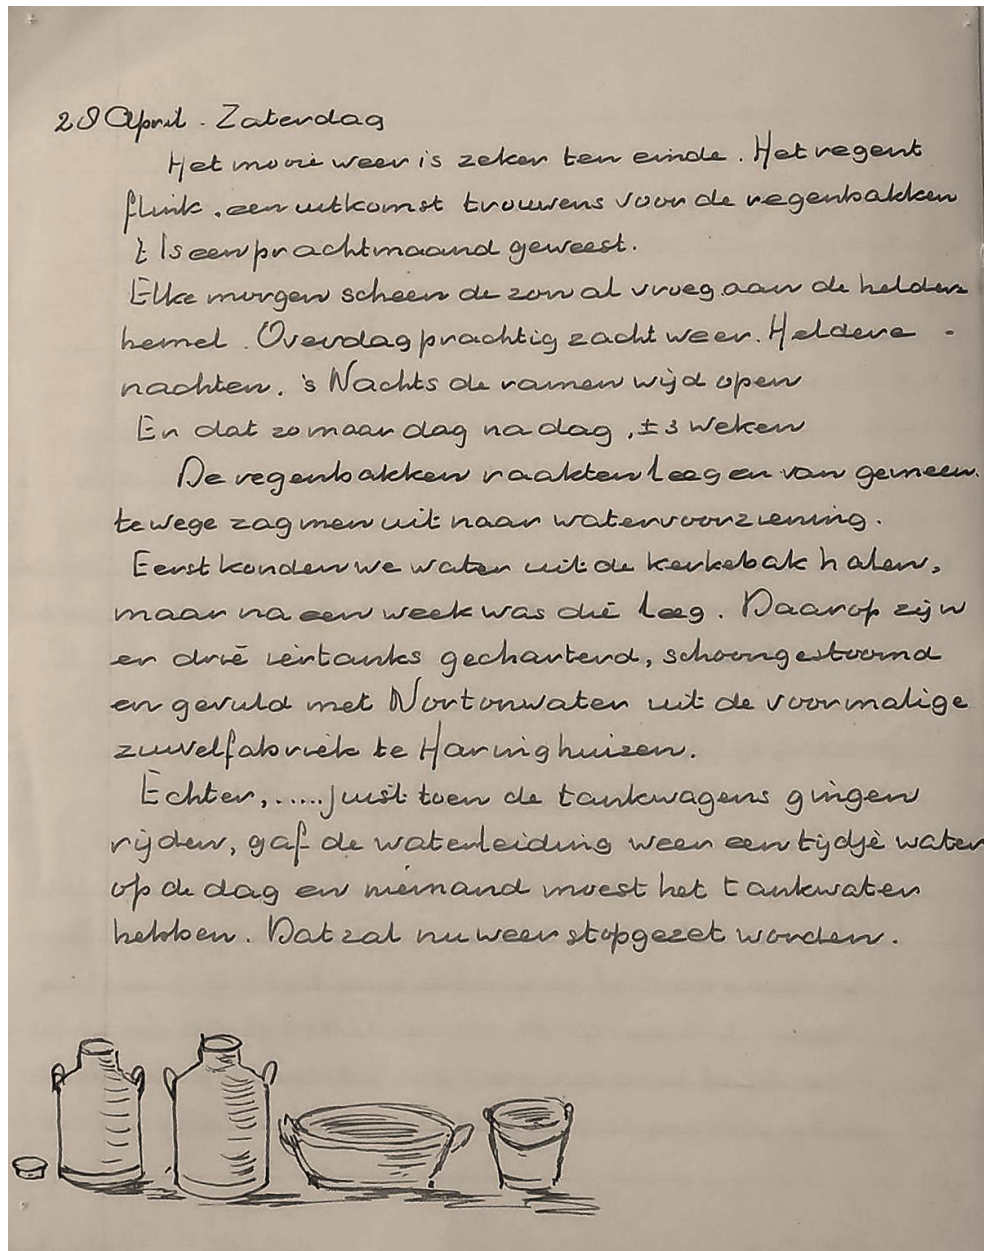 28 April. Zaterdag
Het mooie weer is zeker ten einde. Het regent
flink, een uitkomst trouwens voor de regenbakken
't Is een prachtmaand geweest.
Elke morgen scheen de zon al vroeg aan de heldere
hemel. Overdag prachtig zacht weer. Heldere -
nachten. 's Nachts de ramen wijd open
En dat zo maar dag na dag, ± 3 weken
De regenbakken raakten leeg en van gemeen-
tewege zag men uit naar watervoorziening.
Eerst konden we water uit de kerkebak halen,
maar na een week was die leeg. Daarop zijn
er drie iertanks gecharterd, schoongestoomd
en gevuld met Nortonwater uit de voormalige
zuivelfabriek te Haringhuizen.
Echter,.....juist toen de tankwagens gingen
rijden, gaf de waterleiding weer een tijdje water
op de dag en niemand moest het tankwater
hebben. Dat zal nu weer stopgezet worden.